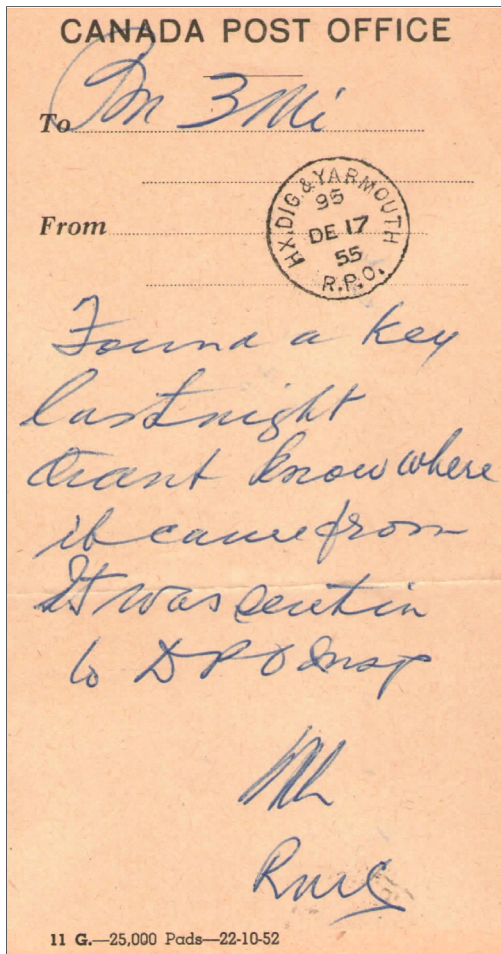 CANADA POST OFFICE
To 3 Mi
From
HX. DIG. & YARMOUTH
95
DE 17
55
R.P.O.
Found a key
last night
know where
it came from
It was sent in
to D P O Insp
11 G.—25,000 Pads—22-10-52